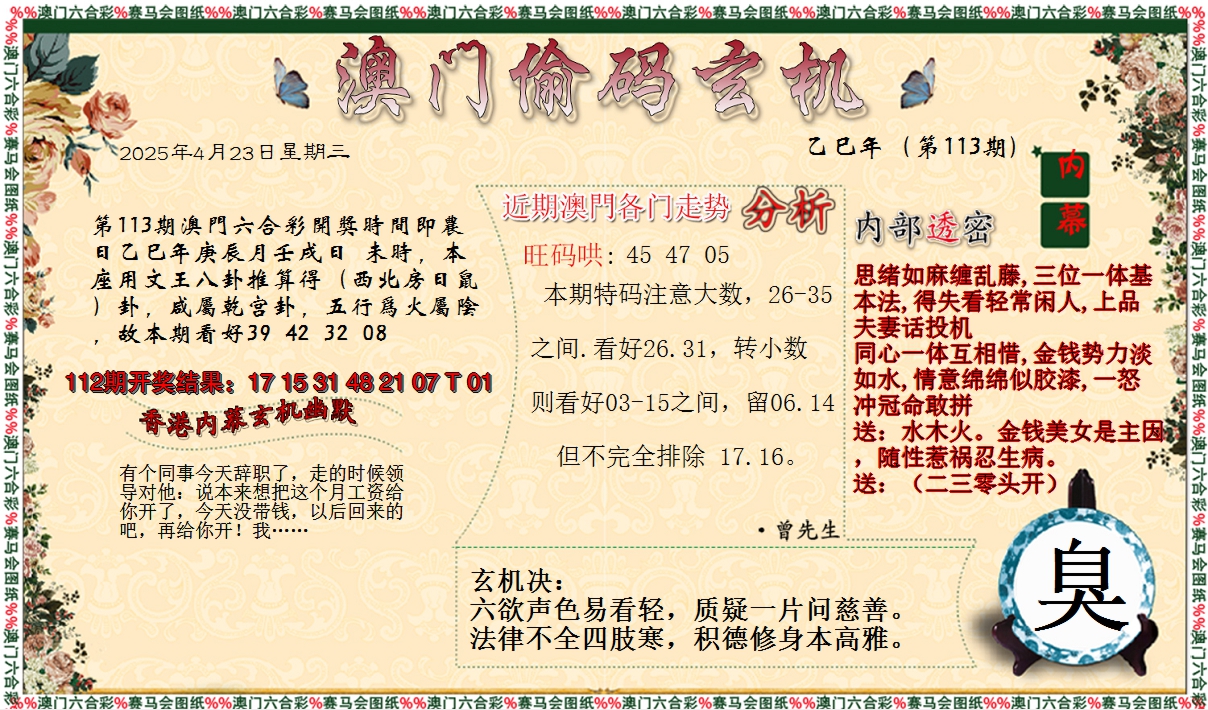 %%澳门六合彩%赛马会图纸%%澳门六合彩%赛马会图纸%%澳门六合彩%赛马会图纸%%澳门六合彩%赛马会图纸%%澳门六合彩%赛马会图纸%%澳门六合彩%赛马会图纸%%
澳门偷码玄机
2025年4月23日星期三
乙巳年（第113期）
内幕
第113期澳門六合彩開獎時間即農
日乙巳年庚辰月壬戌日 未時，本
座用文王八卦推算得（西北房日鼠
）卦，咸屬乾宫卦，五行爲火屬陰
，故本期看好39 42 32 08
112期开奖结果：17 15 31 48 21 07 T 01
香港内幕玄机幽默
有个同事今天辞职了，走的时候领
导对他：说本来想把这个月工资给
你开了，今天没带钱，以后回来的
吧，再给你开！我……
近期澳門各门走势 分析
旺码哄：45 47 05
本期特码注意大数，26-35
之间.看好26.31，转小数
则看好03-15之间，留06.14
但不完全排除 17.16。
·曾先生
内部透密
思绪如麻缠乱藤,三位一体基
本法,得失看轻常闲人,上品
夫妻话投机
同心一体互相惜,金钱势力淡
如水,情意绵绵似胶漆,一怒
冲冠命敢拼
送：水木火。金钱美女是主因
，随性惹祸忍生病。
送：（二三零头开）
玄机决：
六欲声色易看轻，质疑一片问慈善。
法律不全四肢寒，积德修身本高雅。
臭
%%澳门六合彩%赛马会图纸%%澳门六合彩%赛马会图纸%%澳门六合彩%赛马会图纸%%澳门六合彩%赛马会图纸%%澳门六合彩%赛马会图纸%%澳门六合彩%赛马会图纸%%
%%澳门六合彩%赛马会图纸%%澳门六合彩%赛马会图纸%%澳门六合彩%赛马会图纸%%澳门六合彩
%%澳门六合彩%赛马会图纸%%澳门六合彩%赛马会图纸%%澳门六合彩%赛马会图纸%%澳门六合彩